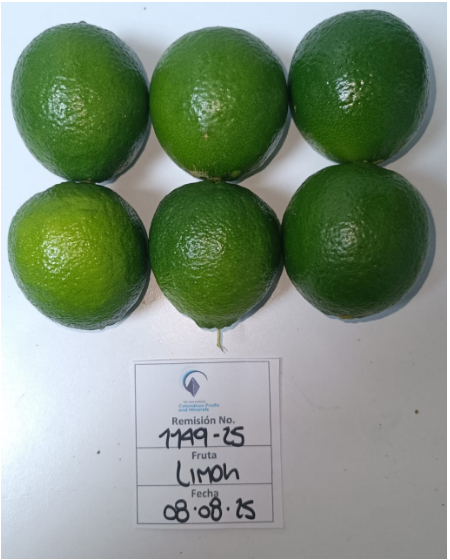 Colombian Fruits
and Minerals
Remisión No.
1149-25
Fruta
Limon
Fecha
08.08.25